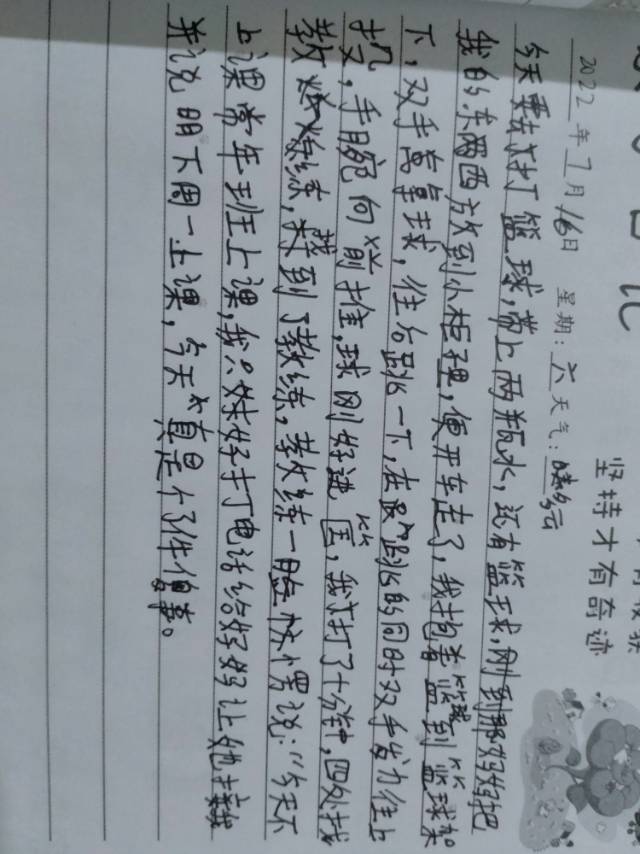 日记
坚持才有奇迹
2022年7月16日 星期:六 天气:晴多云
今天要去打篮球,带上两瓶水,还有篮球,刚到那妈妈把
我的东西放到小柜里,便开车走了,我抱着篮球到篮球架
下,双手高拿球,往后跳一下,在跳的同时双手发力往上
扔,手腕向前推,球刚好进框,我打了十分钟,四处找
教练,找到了教练,教练一脸惊愕说:“今天不
上课常年班上课,我只好打电话给妈妈让她接我
并说明下周一上课,今天真是个事。